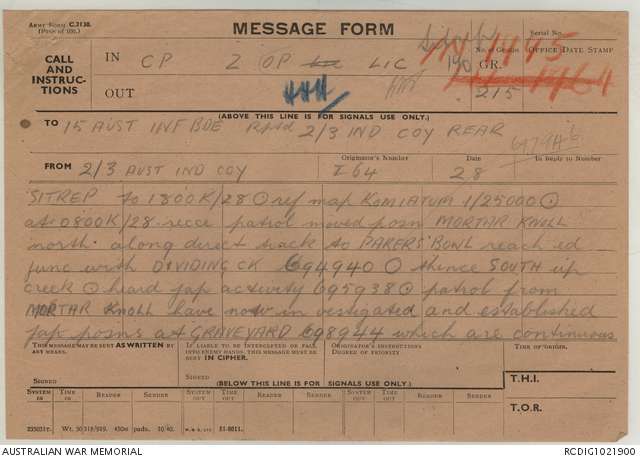 ARMY FORM C.2138.
(Pads of 100.)
MESSAGE FORM
Serial No.
CALL AND INSTRUCTIONS
IN CP Z OP LIC
No. of Groups
190
GR.
215
OFFICE DATE STAMP
OUT
(ABOVE THIS LINE IS FOR SIGNALS USE ONLY.)
TO 15 AUST INF BDE Rptd 2/3 IND COY REAR
FROM 2/3 AUST IND COY
Originator's Number
I 64
Date
28
In Reply to Number
SITREP to 1800K/28 ⊙ ref map KOMIATUM 1/25000 ⊙
at 0800K/28 recce patrol moved posn MORTAR KNOLL
north along direct track to PARERS BOWL reach ed
junc with DIVIDING CK 694940 ⊙ thence SOUTH up
creek ⊙ heard jap activity 695938 ⊙ patrol from
MORTAR KNOLL have now in vestigated and established
jap posns at GRAVEYARD 698944 which are continuous
THIS MESSAGE MAY BE SENT AS WRITTEN BY ANY MEANS.
IF LIABLE TO BE INTERCEPTED OR FALL INTO ENEMY HANDS, THIS MESSAGE MUST BE SENT IN CIPHER.
ORIGINATOR'S INSTRUCTIONS
DEGREE OF PRIORITY
TIME OF ORIGIN.
SIGNED
SIGNED
(BELOW THIS LINE IS FOR SIGNALS USE ONLY.)
T.H.I.
SYSTEM IN
TIME IN
READER
SENDER
SYSTEM OUT
TIME OUT
READER
SENDER
SYSTEM OUT
TIME OUT
READER
SENDER
T.O.R.
51-8011.
AUSTRALIAN WAR MEMORIAL
RCDIG1021900